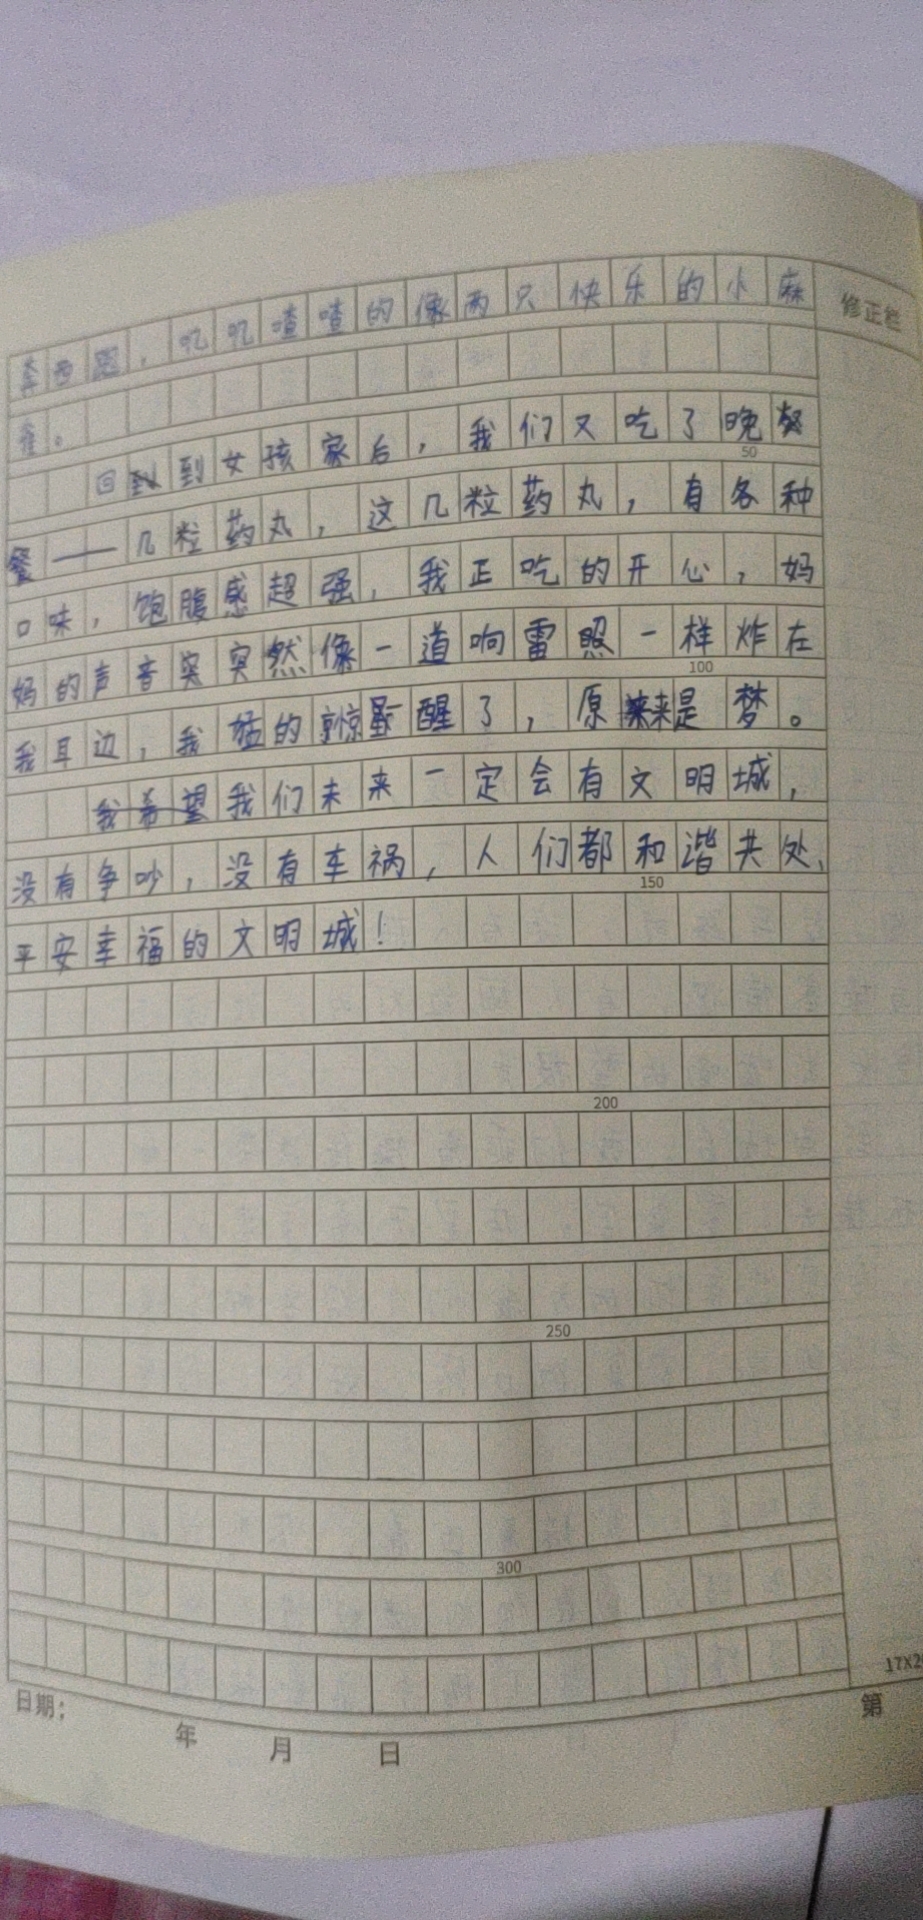 奔西跑，叽叽喳喳的像两只快乐的小麻
修正栏
雀。
回到女孩家后，我们又吃了晚
50
餐——几粒药丸，这几粒药丸，有各种
口味，饱腹感超强，我正吃的开心，妈
妈的声音突突然像一道响雷照一样炸在
100
我耳边，我猛的惊醒了，原来是梦。
我希望我们未来一定会有文明城，
没有争吵，没有车祸，人们都和谐共处、
150
平安幸福的文明城！
200
250
300
17X2
日期：
年 月 日
第